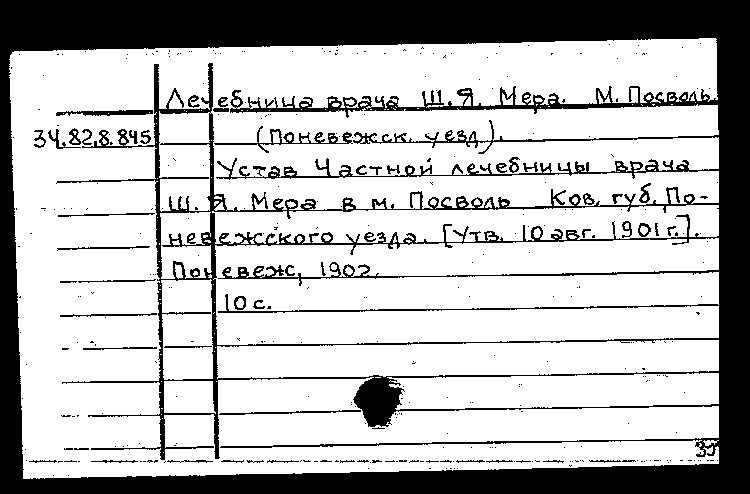 Лечебница врача Ш. Я. Мера. М. Посволь.
34.82.8.845 (Поневежск. уезд).
Устав Частной лечебницы врача
Ш. Я. Мера в м. Посволь Ков. губ. По-
невежского уезда. [Утв. 10 авг. 1901 г.].
Поневеж, 1902.
10 с.